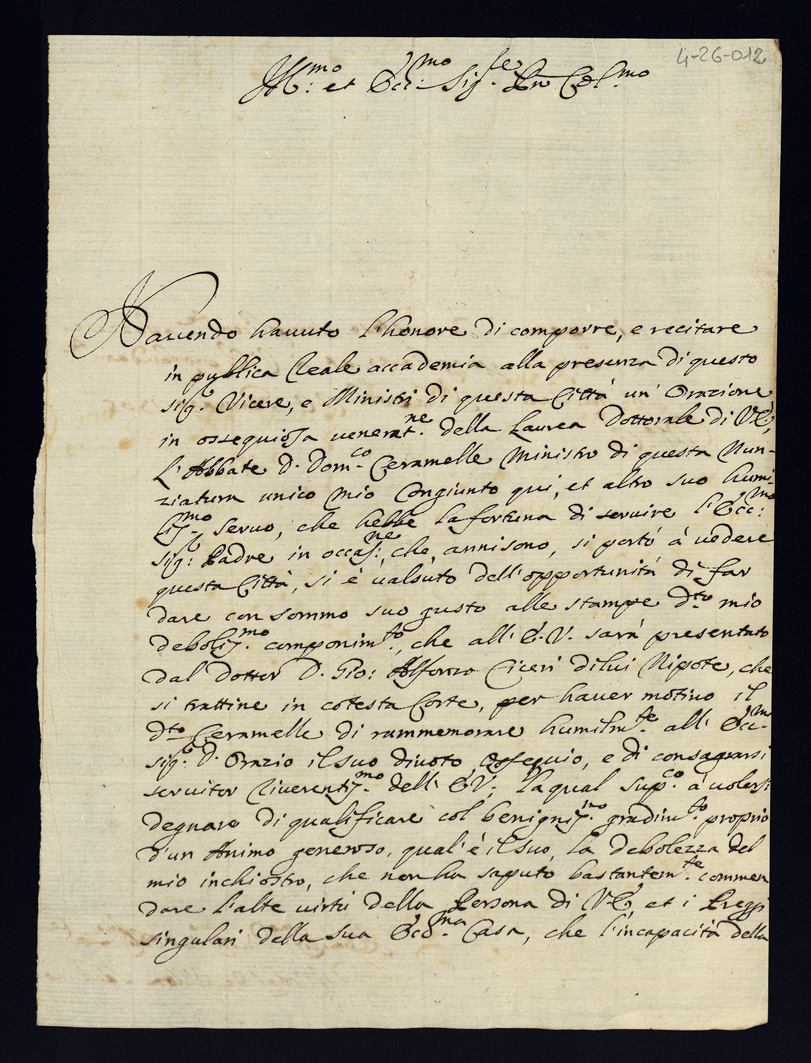 4-26-012
Ill.mo: et Ecc:mo Sig.re Pn Col.mo
Havendo havuto l'honore di comporre, e recitare
in publica Reale accademia alla presenza di questo
sig.r Vicere, e Ministri di questa Città un' Orazione
in ossequiosa venerat.ne della Laurea Dottorale di V.E,
l'Abbate D. Dom.co Ceramelle Ministro di questa Nun-
ziatura unico mio Congiunto qui, et altro suo humi-
liss.mo servo, che hebbe la fortuna di servire l'Ecc:mo
sig: Padre in occas.ne, che, anni sono, si portò à vedere
questa Città, si è valsuto dell'opportunità di far
dare con sommo suo gusto alle stampe d.to mio
deboliss.mo componim.to, che all'E.V. sarà presentato
dal Dottor D. Gio: Alfonzo Ciceri di lui Nipote, che
si trattine in cotesta Corte, per haver motivo il
d.to Ceramelle di rammemorare humilm.te all' Ecc.m
sig.r D. Orazio il suo divoto ossequio, e di consagrarsi
servitor riverentiss.mo dell' E.V; la qual sup.co à volersi
degnare di qualificare col benigniss.mo gradim.to proprio
d'un Animo generoso, qual'è il suo, la debolezza del
mio inchiostro, che non ha saputo bastantem.te commen
dare l'alte virtù della Persona di V.E, et i Preggi
singulari della sua Ecc.ma Casa, che l'incapacità della